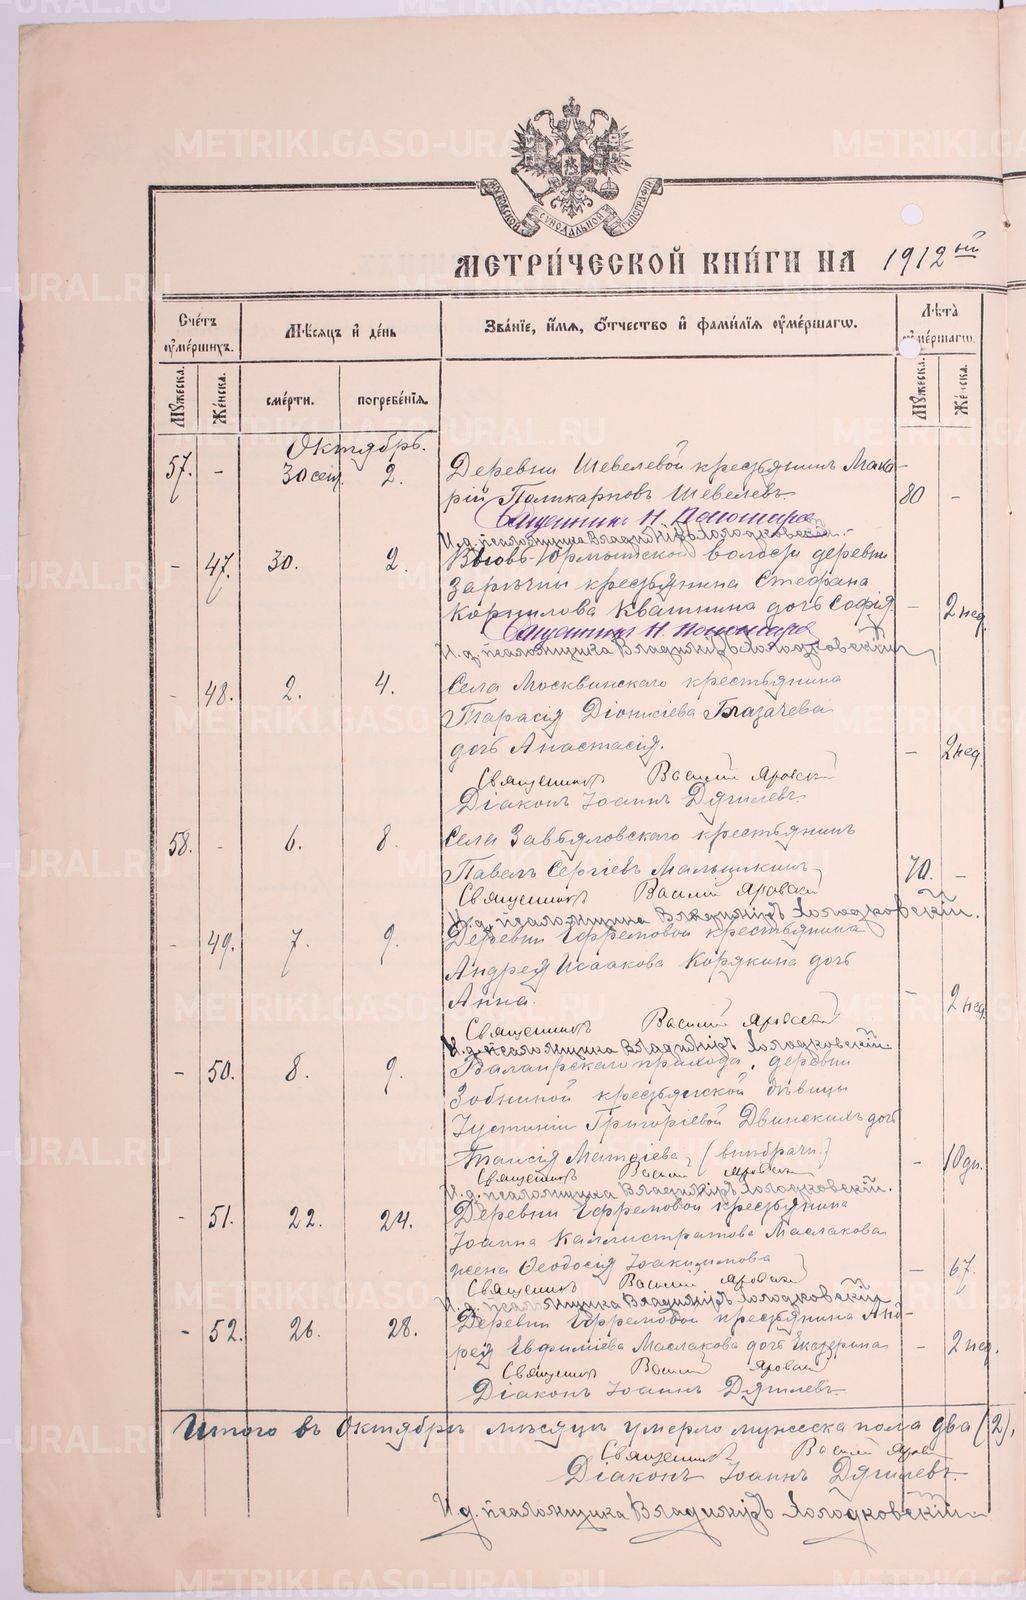 МОСКОВСКОЙ СѴНОДАЛЬНОЙ ТИПОГРАФІИ
МЕТРИ́ЧЕСКОЙ КНИ́ГИ НА 1912 ый
Сче́тъ ᲂу҆ме́ршихъ.
Мѣ́сяцъ и҆ де́нь
Зва́нїе, и҆́мѧ, ѻ҆́тчество и҆ фами́лїѧ ᲂу҆ме́ршагѡ.
Лѣ́та ᲂу҆ме́ршагѡ.
Мꙋ́жеска.
Же́нска.
сме́рти.
погребе́нїѧ.
Мꙋ́жеска.
Же́нска.
Октябрь.
57. - 30 сен. 2. Деревни Шевелевой крестьянинъ Мака-
рій Поликарповъ Шевелевъ 80 -
Священникъ Н. Пономарев
И. д. псаломщика Владиміръ Холодковскій.
- 47. 30. 2. Юрмытской волости деревни
Зарѣчни крестьянина Стефана
Корнилова Квашнина дочь Софія - 2 нед.
Священникъ Н. Пономарев
И. д. псаломщика Владиміръ Холодковскій
- 48. 2. 4. Села Москвинскаго крестьянина
Тарасія Діонисіева Глазачева
дочь Анастасія. - 2 нед.
Священникъ Василій Яровскій
Діаконъ Іоаннъ Дягилевъ
58. - 6. 8. Села Завьяловскаго крестьянинъ
Павелъ Сергіевъ Мальцикинъ 70. -
Священникъ Василій Яровский
И. д. псаломщика Владиміръ Холодковскій.
- 49. 7. 9. Деревни Ефремовой крестьянина
Андрея Исаакова Корякина дочь
Анна. - 2 нед.
Священникъ Василій Яровский
И. д. псаломщика Владиміръ Холодковскій.
- 50. 8. 9. Валаирскаго прихода, деревни
Зобниной крестьянской дѣвицы
Іустиніи Григоріевой Двинскихъ дочь
Таисія Матѳіева (внѣбрачн.) - 10 дн.
Священникъ Василій Яровский
И. д. псаломщика Владиміръ Холодковскій.
- 51. 22. 24. Деревни Ефремовой крестьянина
Іоанна Каллистратова Маслакова
жена Ѳеодосія Іоакимова - 67.
Священникъ Василій Яровский
И. д. псаломщика Владиміръ Холодковскій
- 52. 26. 28. Деревни Ефремовой крестьянина Анд-
рея Евфиміева Маслакова дочь Екатерина - 2 нед.
Священникъ Василій Яровский
Діаконъ Іоаннъ Дягилевъ
Итого въ Октябрѣ мѣсяцѣ умерло мужеска пола два (2),
Священникъ Василій Яровский
Діаконъ Іоаннъ Дягилевъ.
И. д. псаломщика Владиміръ Холодковскій
METRIKI.GASO-URAL.RU